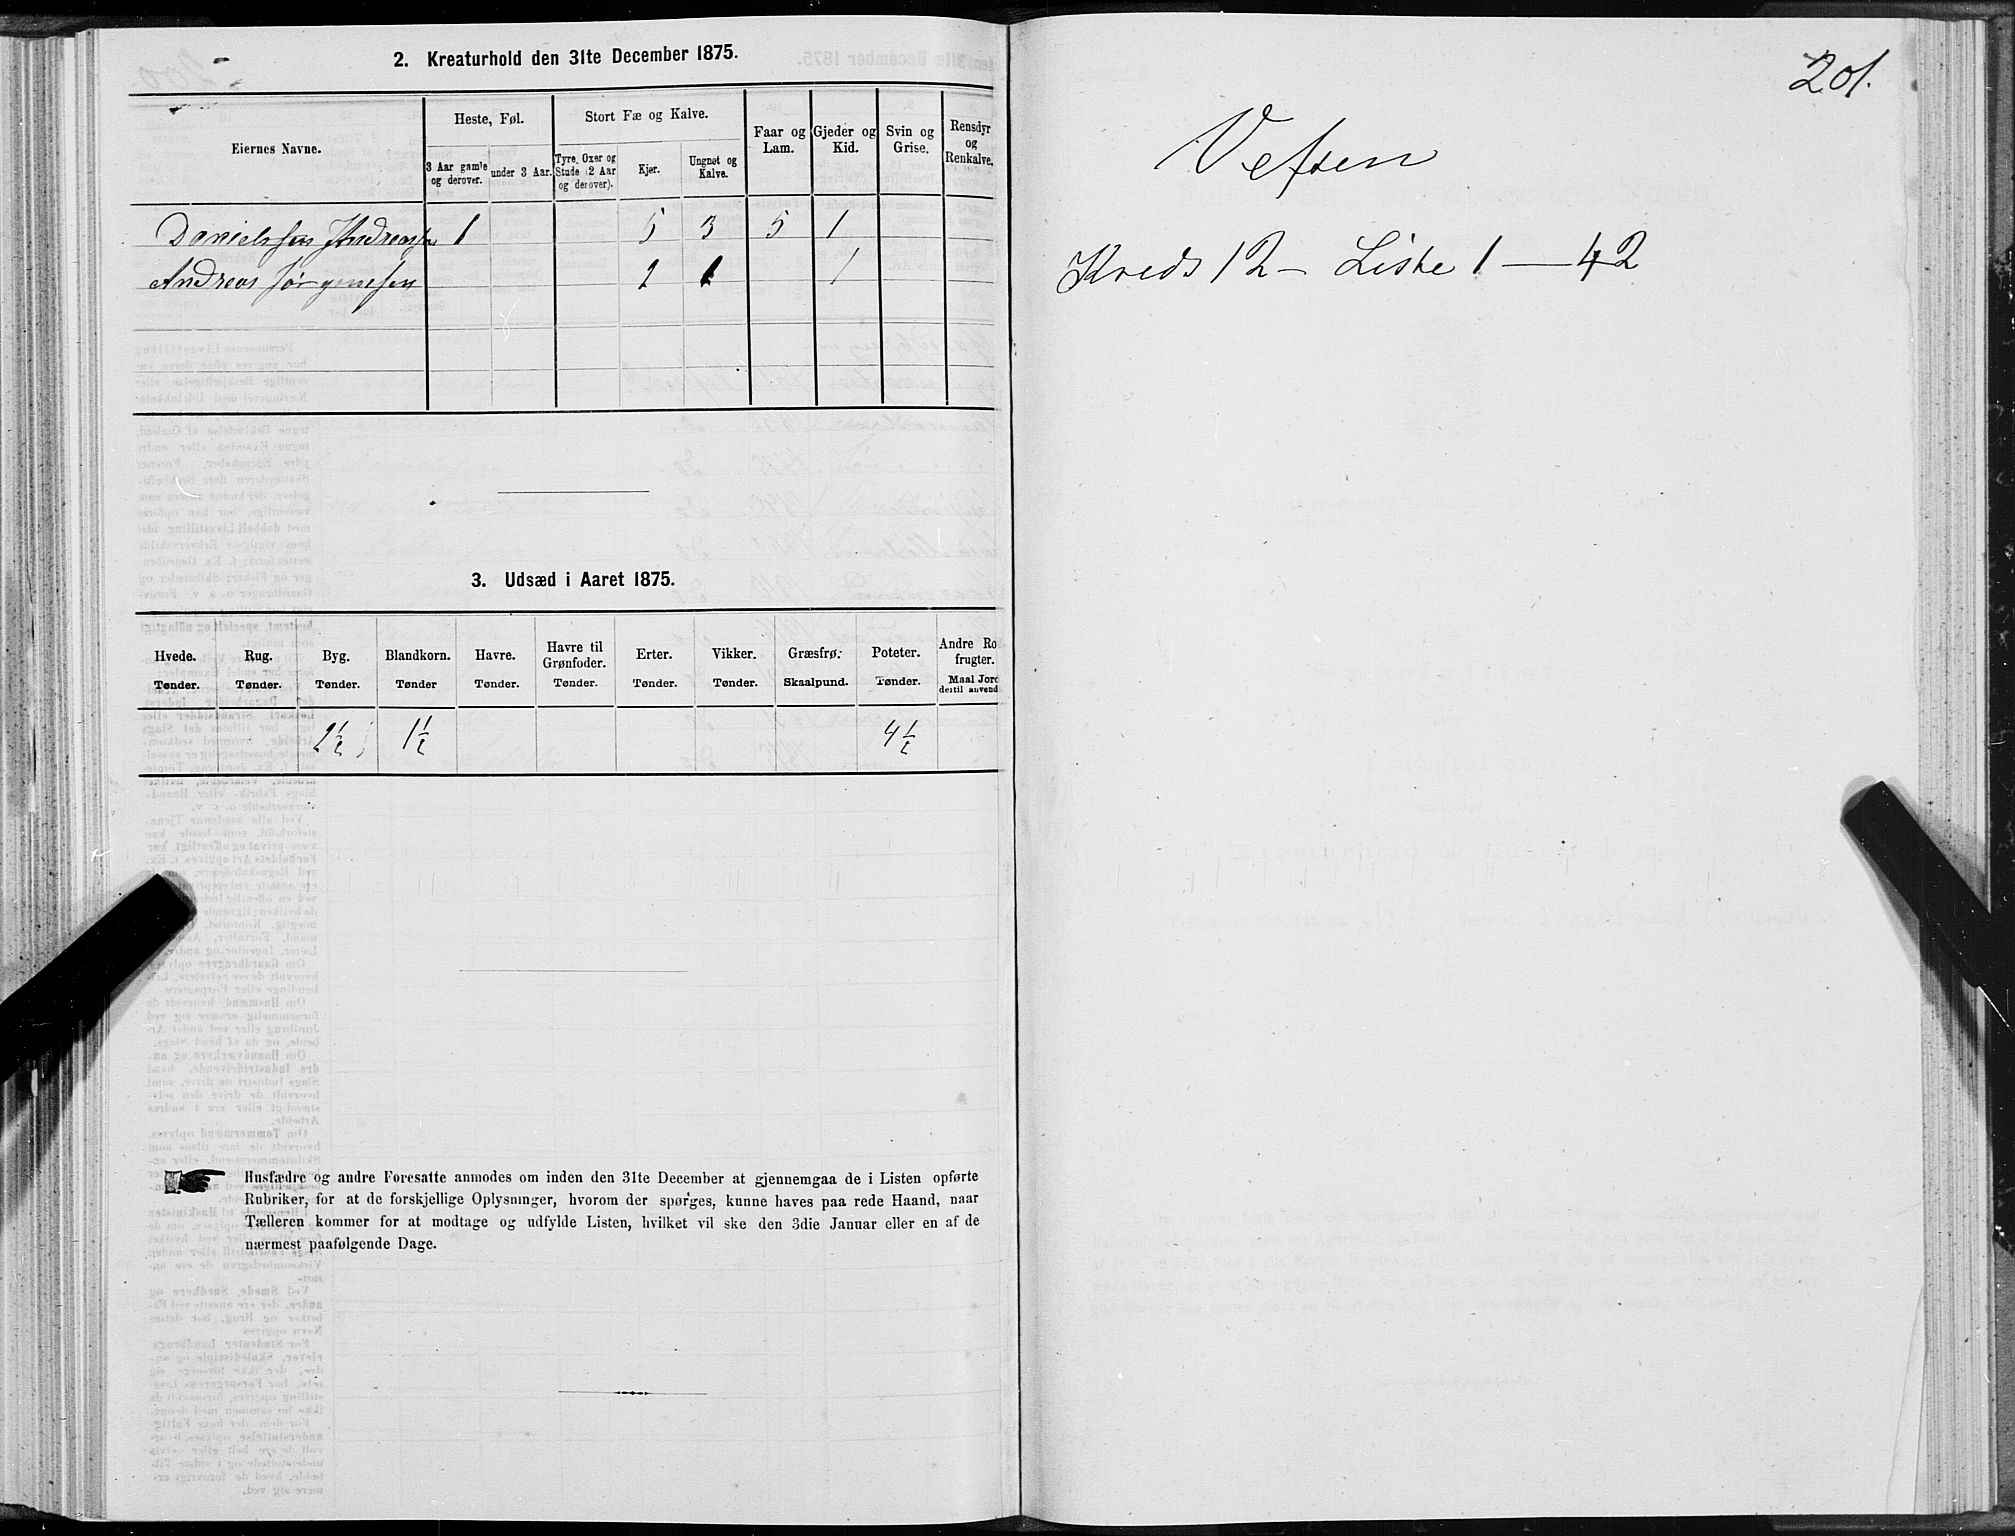 2. Kreaturhold den 31te December 1875.
Eiernes Navne.
Heste, Føl.
3 Aar gamle og derover.
under 3 Aar.
Stort Fæ og Kalve.
Tyre, Oxer og Stude (2 Aar og derover).
Kjer.
Ungnøt og Kalve.
Faar og Lam.
Gjeder og Kid.
Svin og Grise.
Rensdyr og Renkalve.
Danielssen Andreas 1 5 3 5 1
Andreas Jørgensen 1 1 1
3. Udsæd i Aaret 1875.
Hvede. Tønder.
Rug. Tønder.
Byg. Tønder.
Blandkorn. Tønder
Havre. Tønder.
Havre til Grønfoder. Tønder.
Erter. Tønder.
Vikker. Tønder.
Græsfrø. Skaalpund.
Poteter. Tønder.
Andre Ro frugter. Maal Jord dertil anvend
2½ 1½ 4½
Husfædre og andre Foresatte anmodes om inden den 31te December at gjennemgaa de i Listen opførte
Rubriker, for at de forskjellige Oplysninger, hvorom der spørges, kunne haves paa rede Haand, naar
Tælleren kommer for at modtage og udfylde Listen, hvilket vil ske den 3die Januar eller en af de
nærmest paafølgende Dage.
201.
Vefsen
Kreds 12 - Liste 1 — 42